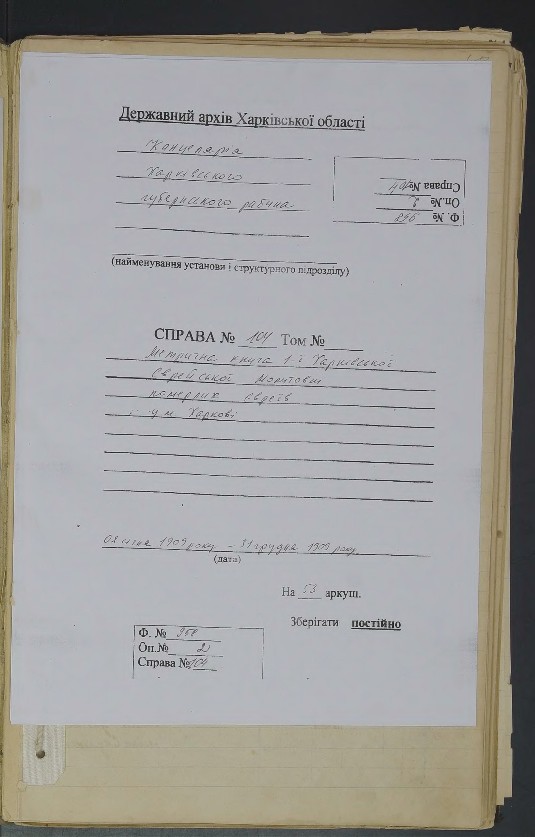 Державний архів Харківської області
Канцелярія
Харківського
губернського рабина
Справа № 104
Оп.№ 2
Ф. №
(найменування установи і структурного підрозділу)
СПРАВА № 104 Том №
Метрична книга 1 ї Харківської
Єврейської Молитовні
померлих євреїв
у м. Харкові
1909 року – 31 грудня 1909 року
(дата)
На 53 аркуш.
Зберігати постійно
Ф. №
Оп.№ 2
Справа № 104